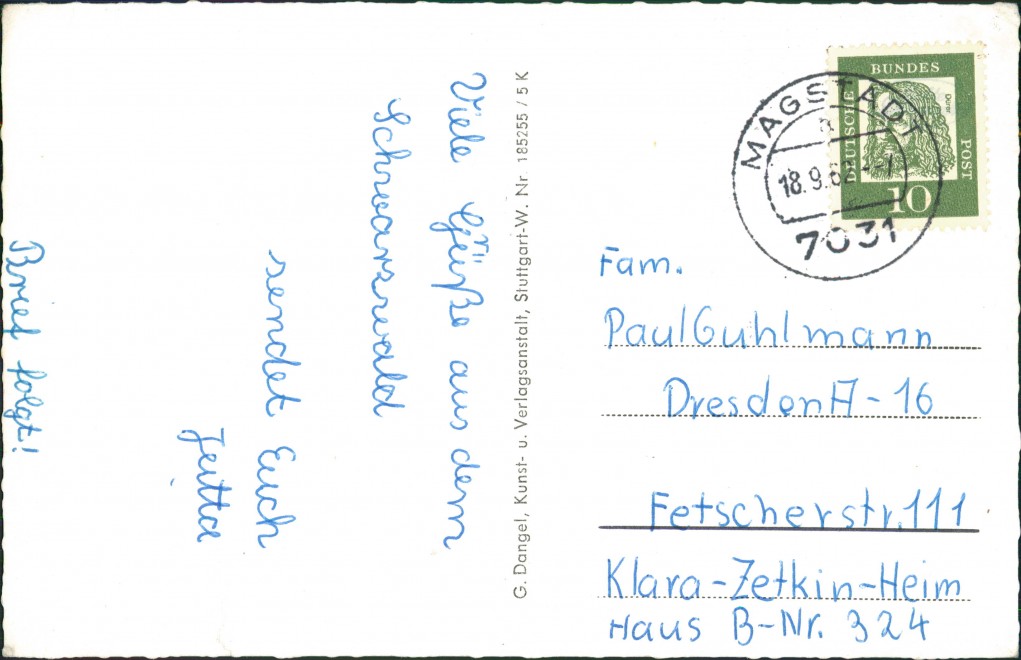 Viele Grüße aus dem
Schwarzwald
sendet Euch
Jutta
Brief folgt!
G. Dangel, Kunst- u. Verlagsanstalt, Stuttgart-W. Nr. 185255 / 5 K
DEUTSCHE BUNDES POST
Dürer
10
MAGSTADT
a
18.9.62
7031
Fam.
Paul Guhlmann
Dresden A-16
Fetscherstr. 111
Klara-Zetkin-Heim
Haus B-Nr. 324